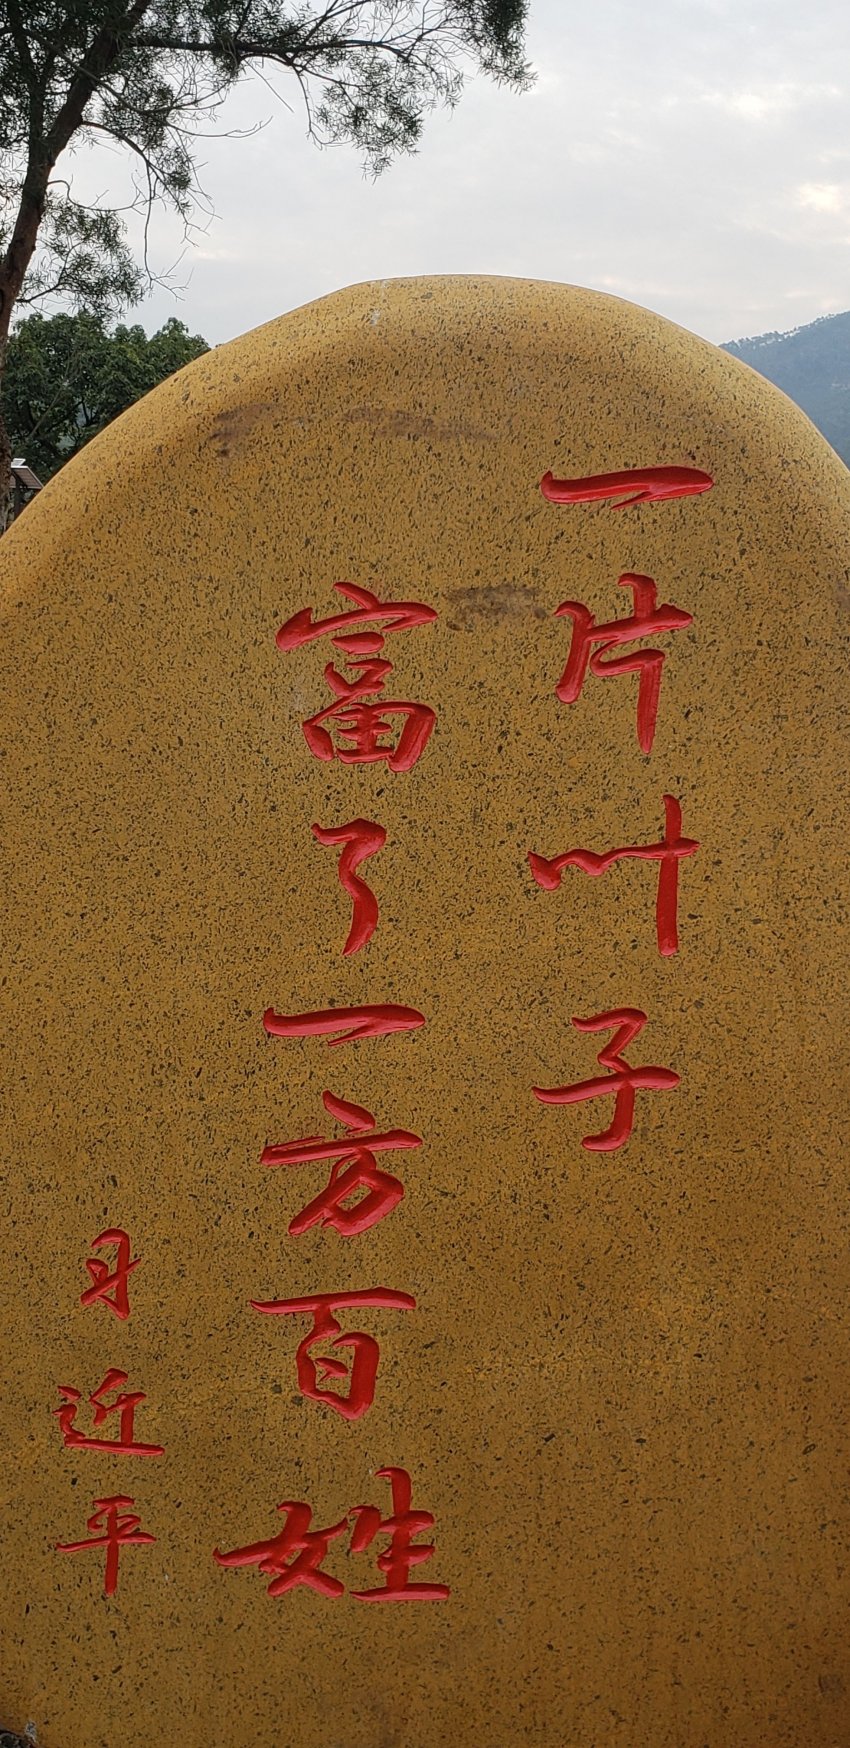 一片叶子
富了一方百姓
习近平